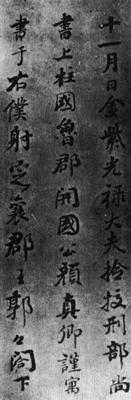 十一月日金紫光禄大夫撿挍刑部尚
書上柱國魯郡開國公顔真卿謹寓
書于右僕射定襄郡王郭公閤下